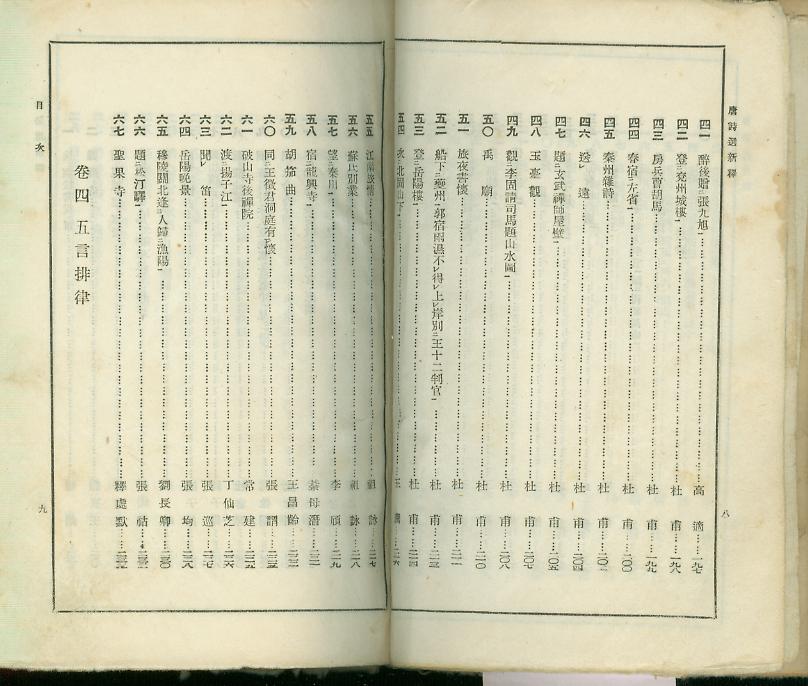 唐詩選新釋
四一 醉後贈二張九旭一 高適 一九七
四二 登二兗州城樓一 杜甫 一九八
四三 房兵曹胡馬 杜甫 一九九
四四 春宿二左省一 杜甫 二〇〇
四五 秦州雜詩 杜甫
四六 送レ遠 杜甫 二〇四
四七 題二玄武禪師屋壁一 杜甫 二〇五
四八 玉臺觀 杜甫 二〇七
四九 觀二李固請司馬題山水圖一 杜甫 二〇八
五〇 禹廟 杜甫 二一〇
五一 旅夜書懷 杜甫 二一一
五二 船下二夔州一郭宿雨濕不レ得レ上レ岸別二王十二判官一 杜甫
五三 登二岳陽樓一 杜甫 二一四
五四 次二北固山下一 王灣 二一六
八
五五 江南旅情 祖詠 二一七
五六 蘇氏別業 祖詠 二一八
五七 望二秦川一 李頎 二一九
五八 宿二龍興寺一 綦毋潛
五九 胡笳曲 王昌齡
六〇 同三王徵君洞庭有レ懷 張謂
六一 破山寺後禪院 常建
六二 渡二揚子江一 丁仙芝
六三 聞レ笛 張巡
六四 岳陽晚景 張均
六五 穆陵關北逢三人歸二漁陽一 劉長卿
六六 題二松汀驛一 張祜
六七 聖果寺 釋處默
卷四 五言排律
目次
九